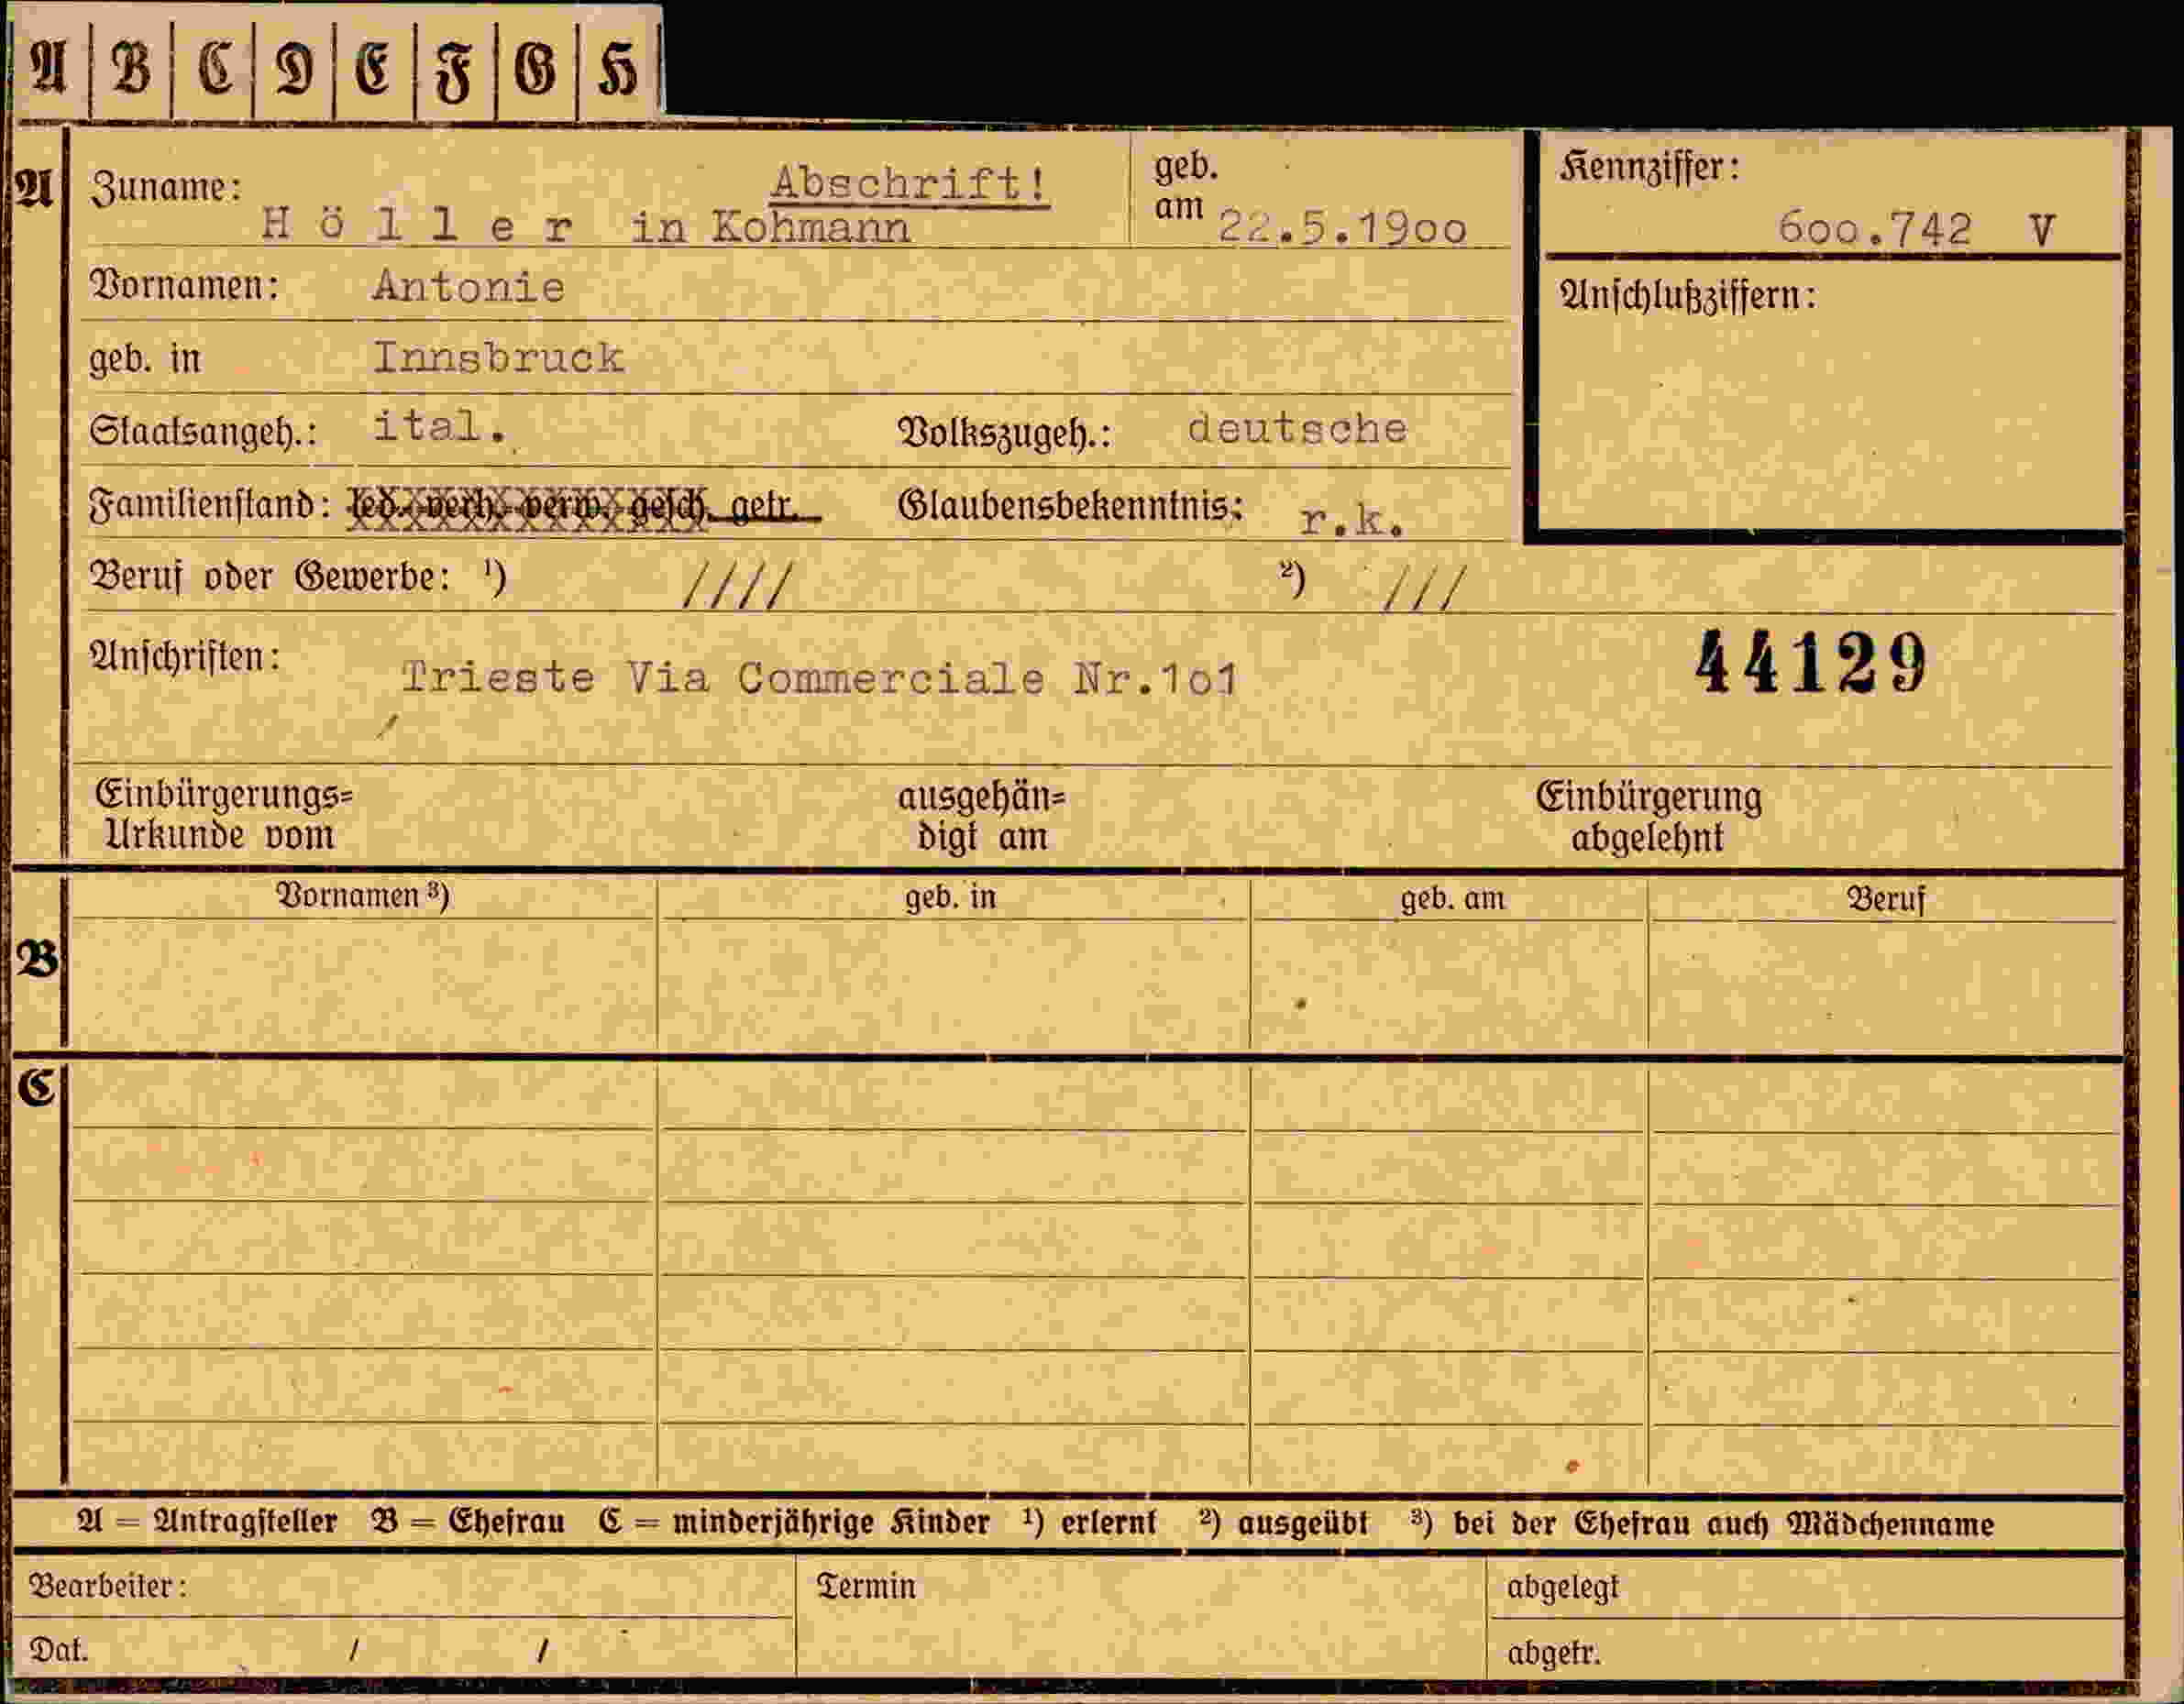 A B C D E F G H
A Zuname: Abschrift! geb. am 22.5.1900 Kennziffer:
Höller in Kohmann 600.742 V
Vornamen: Antonie Anschlußziffern:
geb. in Innsbruck
Staatsangeh.: ital. Volkszugeh.: deutsche
Familienstand: led. verh. verw. gesch. getr. Glaubensbekenntnis: r.k.
Beruf oder Gewerbe: ¹) //// ²) ///
Anschriften: Trieste Via Commerciale Nr.101 44129
Einbürgerungs= ausgehän= Einbürgerung
Urkunde vom digt am abgelehnt
Vornamen ³) geb. in geb. am Beruf
B
C
A = Antragsteller B = Ehefrau C = minderjährige Kinder ¹) erlernt ²) ausgeübt ³) bei der Ehefrau auch Mädchenname
Bearbeiter: Termin abgelegt
Dat. / / abgetr.